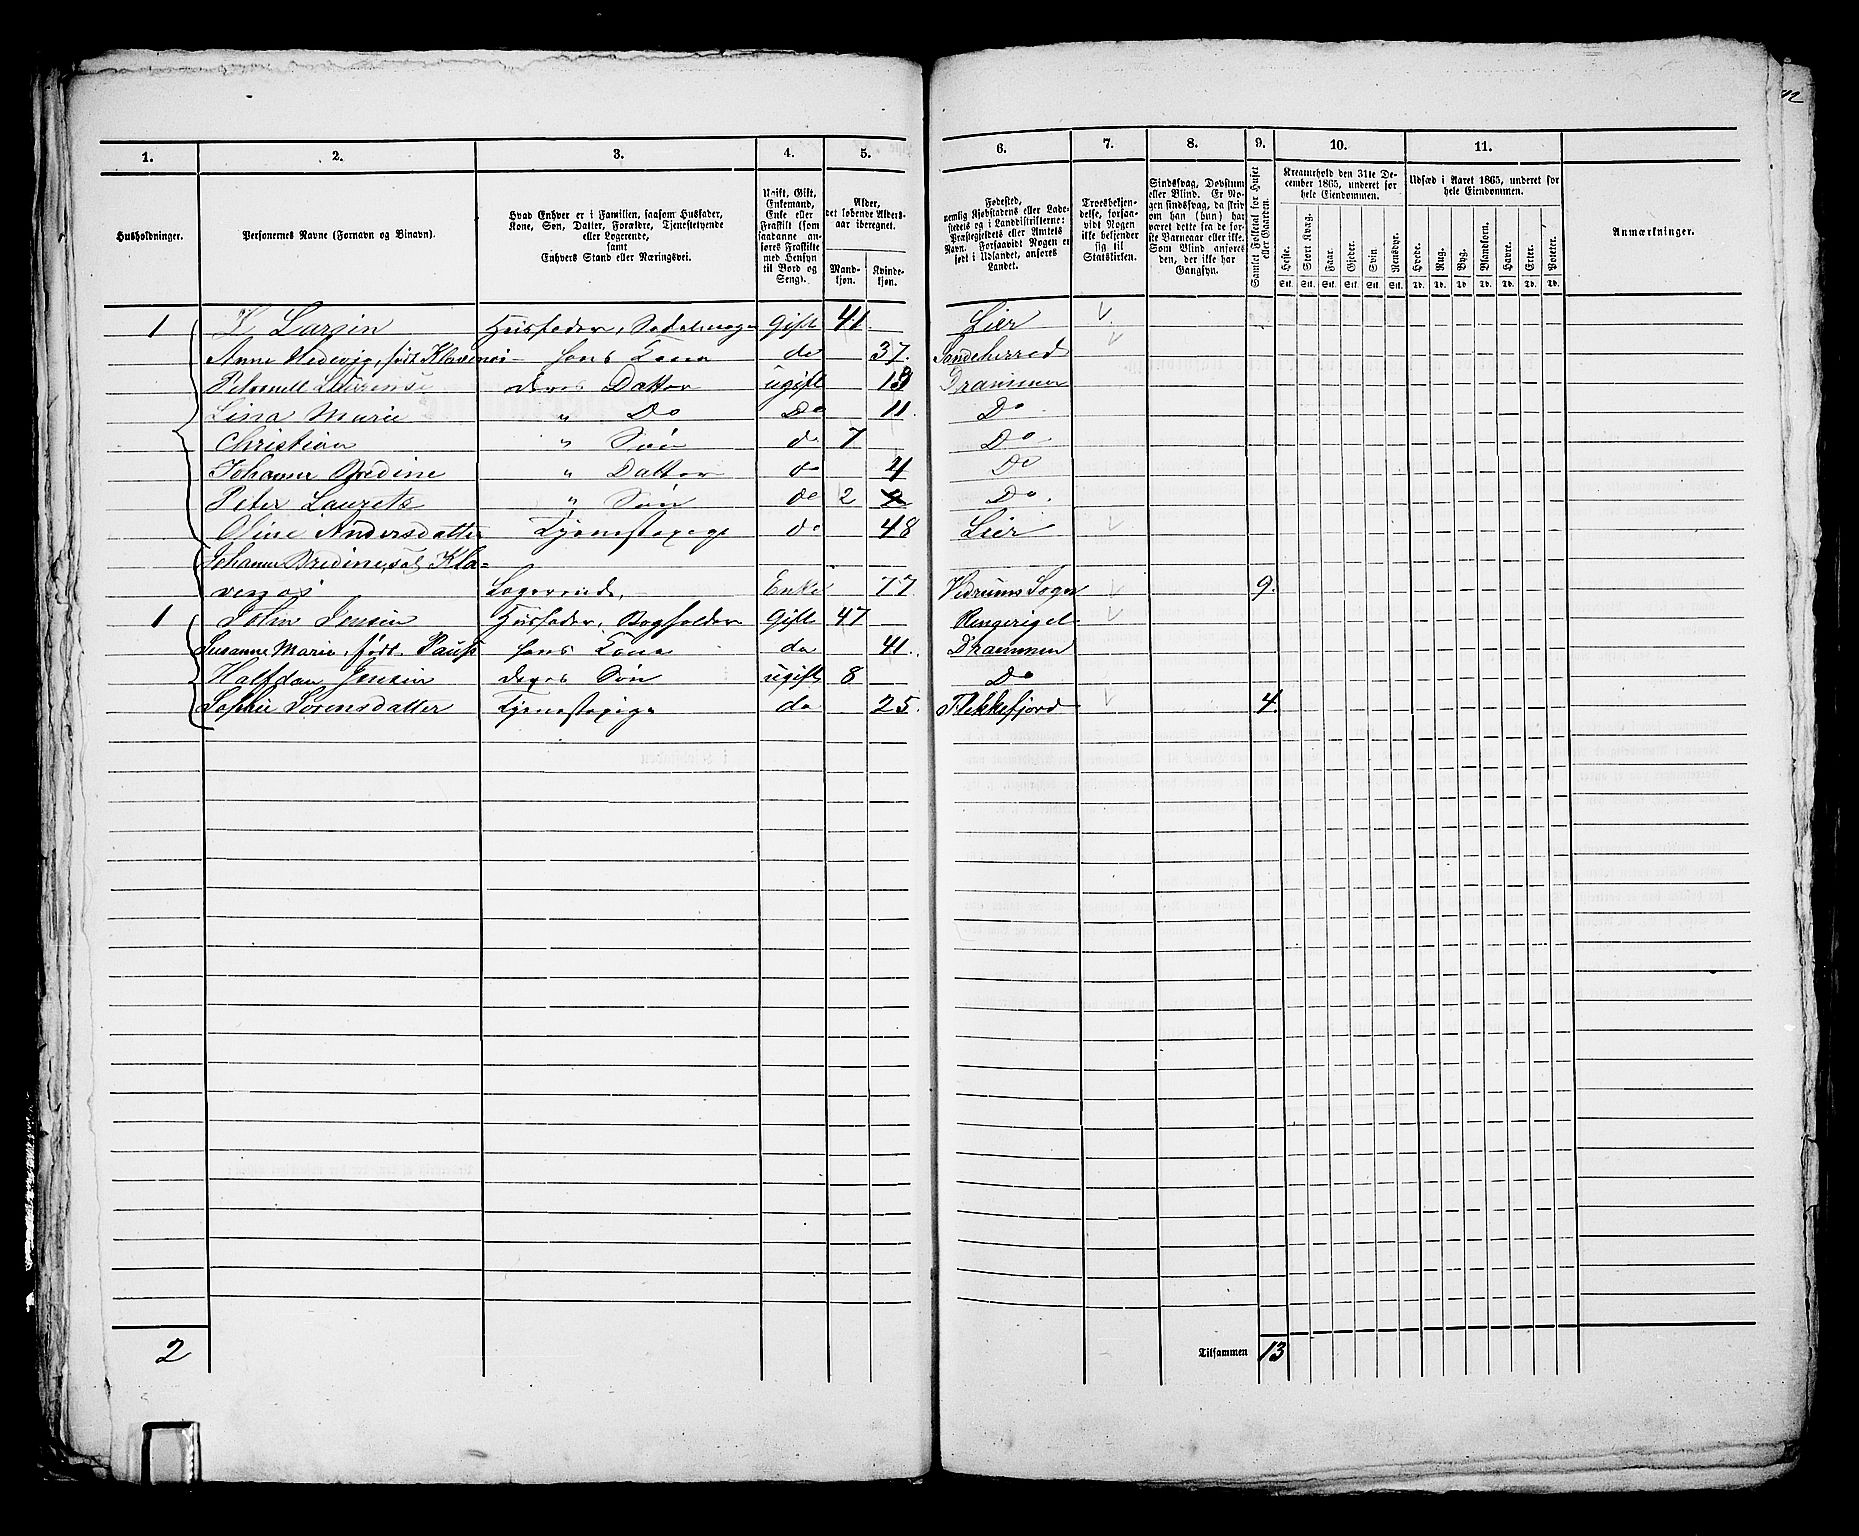 12
1. 2. 3. 4. 5. 6. 7. 8. 9. 10. 11.
Husholdninger.
Personernes Navne (Fornavn og Binavn).
Hvad Enhver er i Familien, saasom Husfader,
Kone, Søn, Datter, Forældre, Tjenestetyende
eller Logerende,
samt
Enhvers Stand eller Næringsvei.
Ugift, Gift,
Enkemand,
Enke eller
Fraskilt (som
saadanne an-
føres Fraskilte
med Hensyn
til Bord og
Seng).
Alder,
det løbende Alders-
aar iberegnet.
Mand-
kjøn.
Kvinde-
kjøn.
Fødested,
nemlig Kjøbstadens eller Lade-
stedets og i Landdistrikterne:
Præstegjeldets eller Amtets
Navn. Forsaavidt Nogen er
født i Udlandet, anføres
Landet.
Troesbekjen-
delse, forsaa-
vidt Nogen
ikke bekjender
sig til
Statskirken.
Sindssvag, Døvstum
eller Blind. Er No-
gen sindssvag, da skriv
om han (hun) har
været dette fra de før-
ste Barneaar eller ikke.
Som Blind anføres
den, der ikke har
Gangsyn.
Samlet Folketal for Huset
eller Gaarden.
Kreaturhold den 31te De-
cember 1865, underet for
hele Eiendommen.
Heste. Stort Kvæg. Faar. Gjeder. Svin. Rensdyr.
Stk. Stk. Stk. Stk. Stk. Stk.
Udsæd i Aaret 1865, underet for
hele Eiendommen.
Hvede. Rug. Byg. Blandkorn. Havre. Erter. Poteter.
Td. Td. Td. Td. Td. Td. Td.
Anmærkninger.
1 K Larsen Husfader, Sadelmager Gift 41 Lier
Anne Hedevig, født Klavenes- hans Kone do 37. Sandeherred
Petronell Laurense deres Datter ugift 13 Drammen
Lina Marie " Do Do 11. Do
Christian " Søn do 7 Do
Johanne Bredine " Datter do 4 Do
Peter Laurets " Søn do 2 Do.
Oline Andersdatter Tjenestepige do 48 Lier
Johanne Bredine, sal. Kla-
venæs Logerende, Enke 77 Sogn 9.
1 John Jensen Husfader, Bogholder Gift 47 Ringeriget
Susanne Marie, født Paus hans Kone do 41. Drammen
Halfdan Jensen deres Søn ugift 8 Do
Sophie Sørensdatter Tjenestepige do 25. Flekkefjord 4.
2
Tilsammen 13